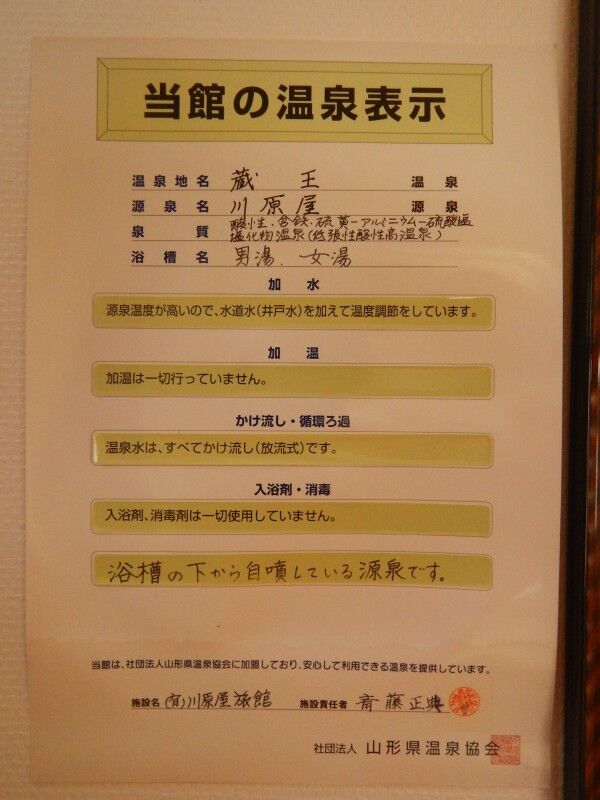 当館の温泉表示
温泉地名 蔵王 温泉
源泉名 川原屋 源泉
泉質 酸性・含鉄・硫黄-アルミニウム-硫酸塩
塩化物温泉(低張性酸性高温泉)
浴槽名 男湯、女湯
加水
源泉温度が高いので、水道水(井戸水)を加えて温度調節をしています。
加温
加温は一切行っていません。
かけ流し・循環ろ過
温泉水は、すべてかけ流し(放流式)です。
入浴剤・消毒
入浴剤、消毒剤は一切使用していません。
浴槽の下から自噴している源泉です。
当館は、社団法人山形県温泉協会に加盟しており、安心して利用できる温泉を提供しています。
施設名 (有)川原屋旅館 施設責任者 斎藤正典
社団法人 山形県温泉協会